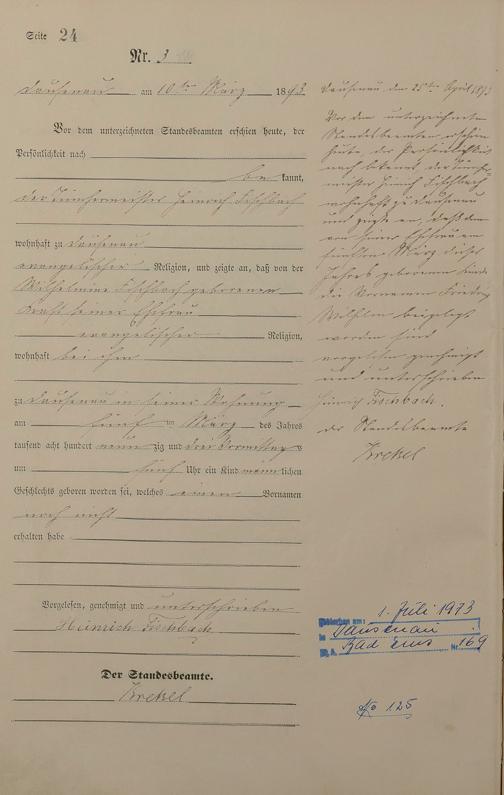 Seite 24
Nr. 3
Dausenau am 10ten März 1893
Vor dem unterzeichneten Standesbeamten erschien heute, der
Persönlichkeit nach
be kannt,
der Tünchermeister Heinrich Fischbach
wohnhaft zu Dausenau
evangelischer Religion, und zeigte an, daß von der
Wilhelmine Fischbach geborenen
seiner Ehefrau
evangelischer Religion,
wohnhaft bei ihm
zu Dausenau in seiner Wohnung
am fünf ten März des Jahres
tausend acht hundert neun zig und drei Vormittags
um fünf Uhr ein Kind männ lichen
Geschlechts geboren worden sei, welches einen Vornamen
noch nicht
erhalten habe
Vorgelesen, genehmigt und unterschrieben
Heinrich Fischbach
Der Standesbeamte.
Krekel
Dausenau den 25ten April 1893
Vor dem unterzeichneten
Standesbeamten erschien
heute, der Persönlichkeit
nach bekannt der Tüncher-
meister Heinrich Fischbach
wohnhaft zu Dausenau
und zeigte an, daß dem
von seiner Ehefrau am
fünften März dieses
Jahres geborenen Kinde
die Vornamen Friedrich
Wilhelm beigelegt
worden sind
vorgelesen genehmigt
und unterschrieben
Heinrich Fischbach.
der Standesbeamte
Krekel
Gestorben am: 1. Juli 1973
in Dausenau
St. A. Bad Ems Nr. 169
No 125